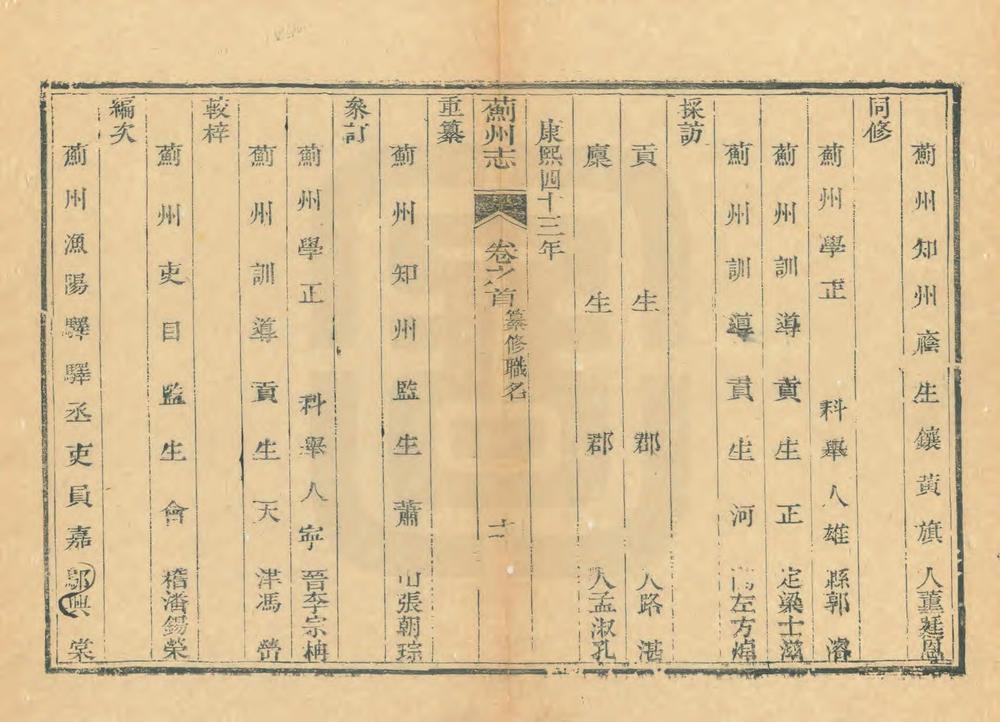 薊州知州廕生鑲黃旗人董廷恩
同修
薊州學正　科舉人雄縣郭濬
薊州訓導貢生正定梁士滋
薊州訓導貢生河間左方燾
採訪
貢生郡人路湛
廩生郡人孟淑孔
康熙四十三年
薊州志　卷之首　纂修職名
重纂
薊州知州監生蕭山張朝琮
叅訂
薊州學正　科舉人寧晉李宗栴
薊州訓導貢生天津馮
較梓
薊州吏目監生會稽潘錫榮
編次
薊州漁陽驛驛丞吏員嘉興棠